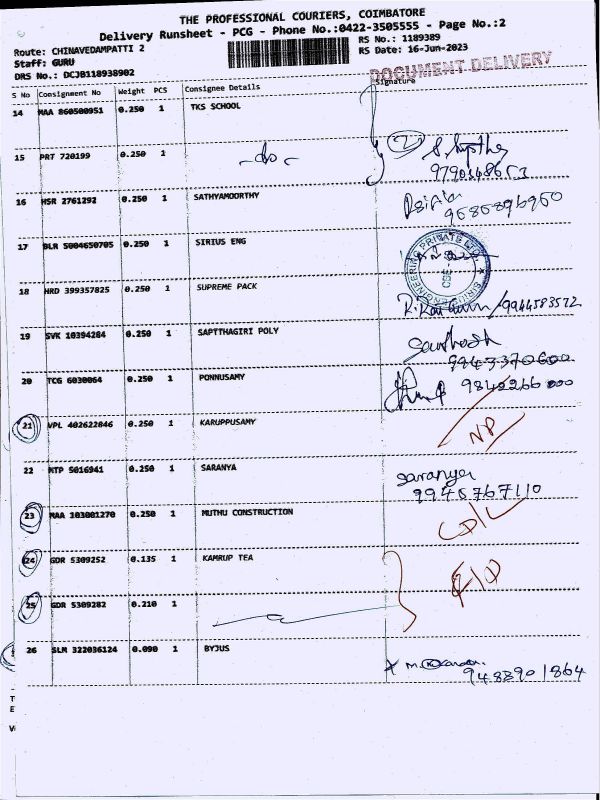 THE PROFESSIONAL COURIERS, COIMBATORE
Delivery Runsheet - PCG - Phone No.:0422-3505555 - Page No.:2
Route: CHINAVEDAMPATTI 2
RS No.: 1189389
Staff: GURU
RS Date: 16-Jun-2023
DRS No.: DCJB118938902
DOCUMENT DELIVERY
S No Consignment No Weight PCS Consignee Details Signature
14 MAA 860500951 0.250 1 TKS SCHOOL
15 PRT 720199 0.250 1 -do- 2
16 HSR 2761292 0.250 1 SATHYAMOORTHY
17 BLR 5004650705 0.250 1 SIRIUS ENG
18 HRD 399357825 0.250 1 SUPREME PACK 9944583572
19 SVK 10394284 0.250 1 SAPTTHAGIRI POLY
9943370600
20 TCG 6030064 0.250 1 PONNUSAMY 9842266000
21 VPL 402622846 0.250 1 KARUPPUSAMY NP
22 MTP 5016941 0.250 1 SARANYA Saranya
9945767110
23 MAA 103001270 0.250 1 MUTHU CONSTRUCTION
24 GDR 5309252 0.135 1 KAMRUP TEA
25 GDR 5309282 0.210 1
26 SLM 322036124 0.090 1 BYJUS
9488901864